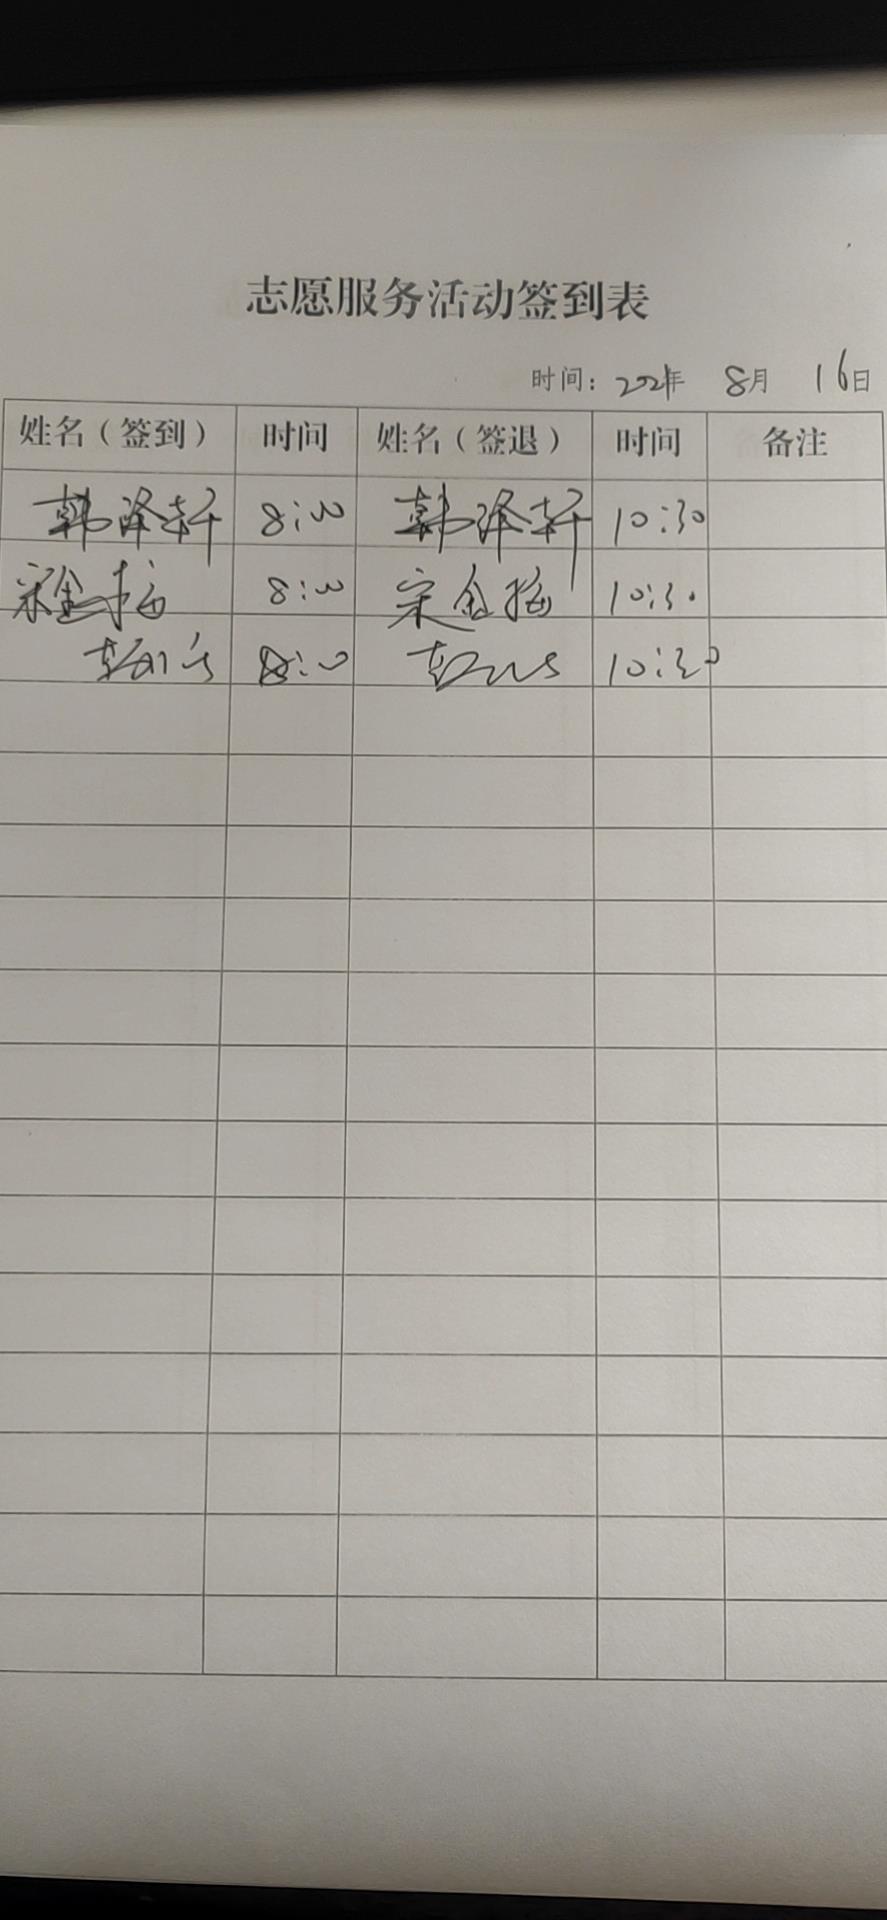 志愿服务活动签到表
时间: 年 8月 16日
姓名（签到） 时间 姓名（签退） 时间 备注
韩泽轩 8:00 韩泽轩 10:30
宋金梅 8:00 宋金梅 10:30
8:00 10:30